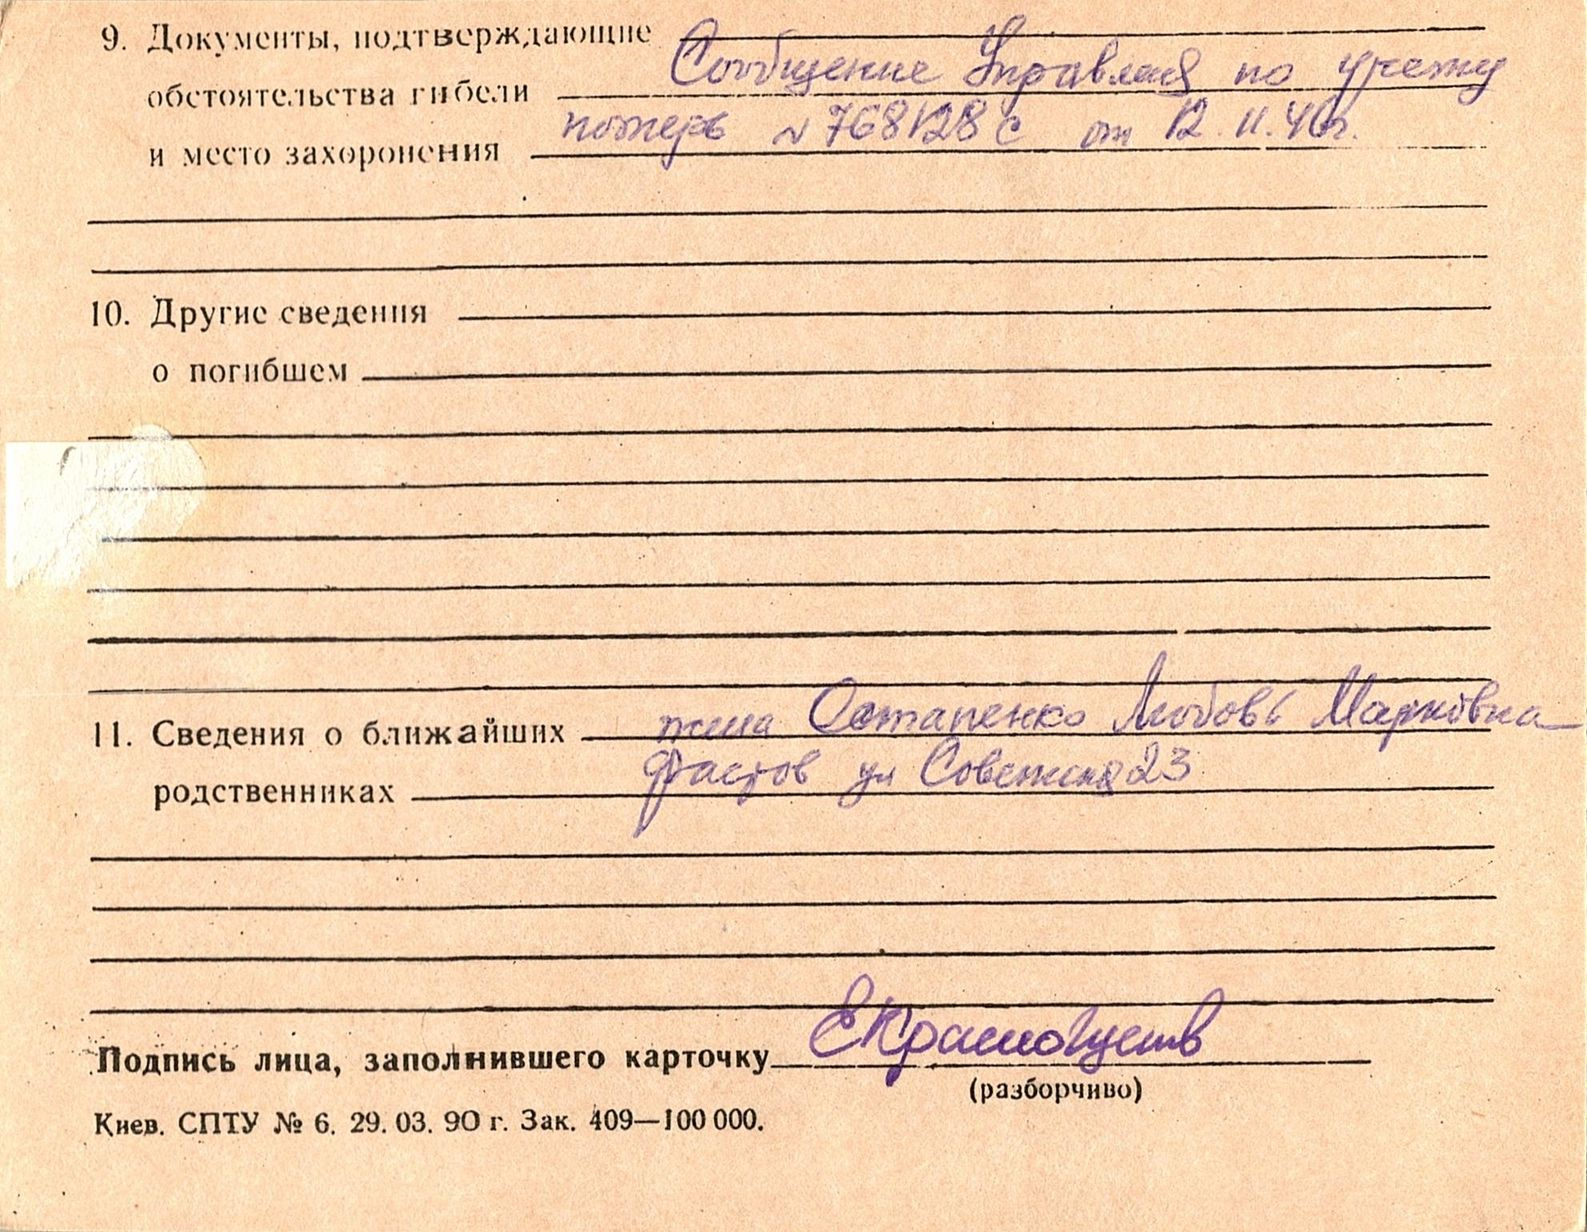 9. Документы, подтверждающие Сообщение Управления по учету
обстоятельства гибели
и место захоронения потерь № 768128с от 12.11.46г.
10. Другие сведения
о погибшем
11. Сведения о ближайших жена Остапенко Любовь Марковна
родственниках Фастов ул Советская 23
Подпись лица, заполнившего карточку
(разборчиво)
Киев. СПТУ № 6. 29.03.90 г. Зак. 409—100 000.